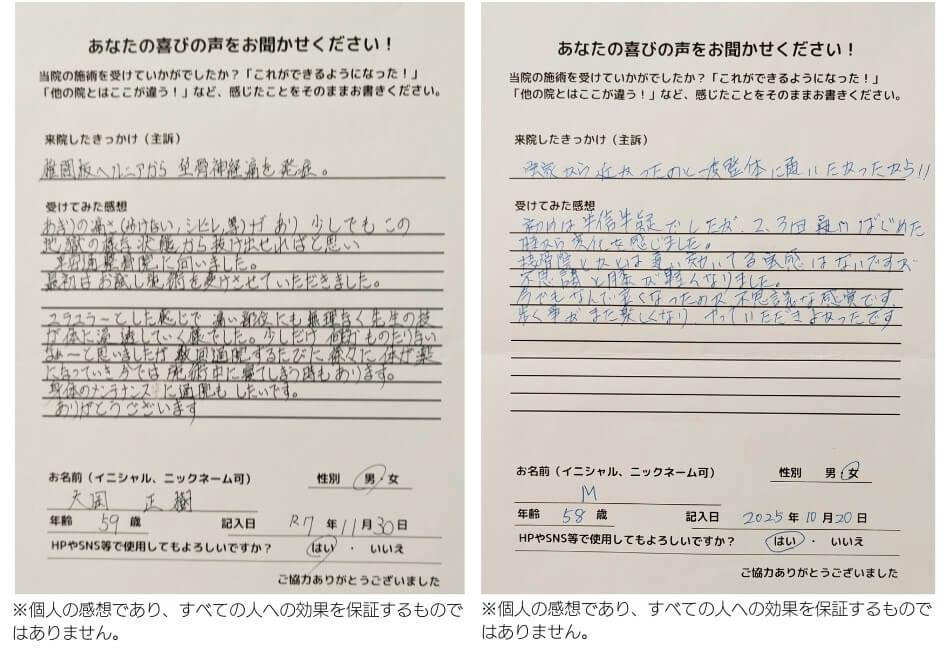 あなたの喜びの声をお聞かせください！
当院の施術を受けていかがでしたか？「これができるようになった！」
「他の院とはここが違う！」など、感じたことをそのままお書きください。
来院したきっかけ（主訴）
椎間板ヘルニアから 坐骨神経痛を発症。
受けてみた感想
あまりの痛さ(歩けない、シビレ、等)があり 少しでもこの
地獄の様な状態から抜け出せればと思い
整骨院に伺いました。
最初はお試し施術を受けさせていただきました。
スラスラーとした感じで 痛い部位にも無理なく先生の技
が体に浸透していく様でした。少しだけ 何か ものたりない
なぁ〜と思いましたが 数回通院するたびに 徐々に 体が楽
になっていき 今では 施術中に寝てしまう時もあります。
身体のメンテナンスに通院もしたいです。
ありがとうございます
お名前（イニシャル、ニックネーム可）
性別 男・女
正樹
年齢 59 歳
記入日 R7 年 11 月 30 日
HPやSNS等で使用してもよろしいですか？ はい ・ いいえ
ご協力ありがとうございました
※個人の感想であり、すべての人への効果を保証するもので
はありません。
あなたの喜びの声をお聞かせください！
当院の施術を受けていかがでしたか？「これができるようになった！」
「他の院とはここが違う！」など、感じたことをそのままお書きください。
来院したきっかけ（主訴）
実家から近かったのと一度整体に通いたかったから!!
受けてみた感想
初めは半信半疑でしたが、2、3回 はじめた
変化を感じました。
接骨院とかとは違い効いてる実感はないですが
不思議と膝が軽くなりました。
今でもなんで楽になったのか不思議な感覚です。
歩く事がまた楽しくなり やっていただきよかったです
お名前（イニシャル、ニックネーム可）
性別 男・女
M
年齢 58 歳
記入日 2025 年 10 月 20 日
HPやSNS等で使用してもよろしいですか？ はい ・ いいえ
ご協力ありがとうございました
※個人の感想であり、すべての人への効果を保証するもので
はありません。